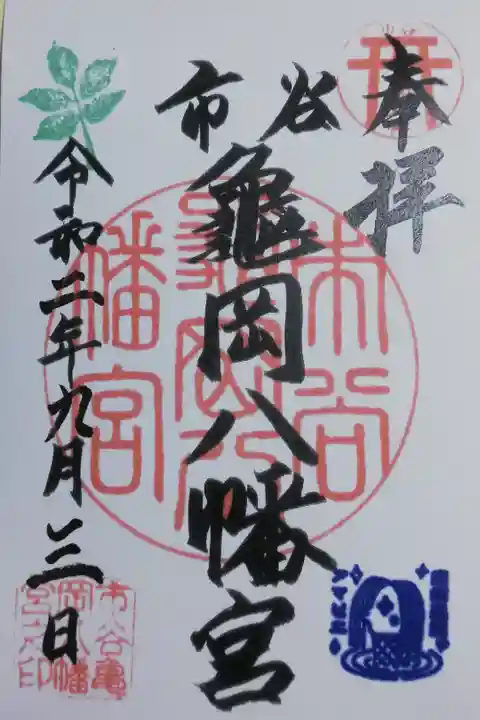 奉拝
市谷
亀岡八幡宮
令和二年九月三日
市谷
亀岡八
幡宮
市谷亀
岡八幡
宮之印